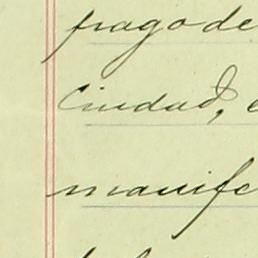 frago de
Ciudad,
manife